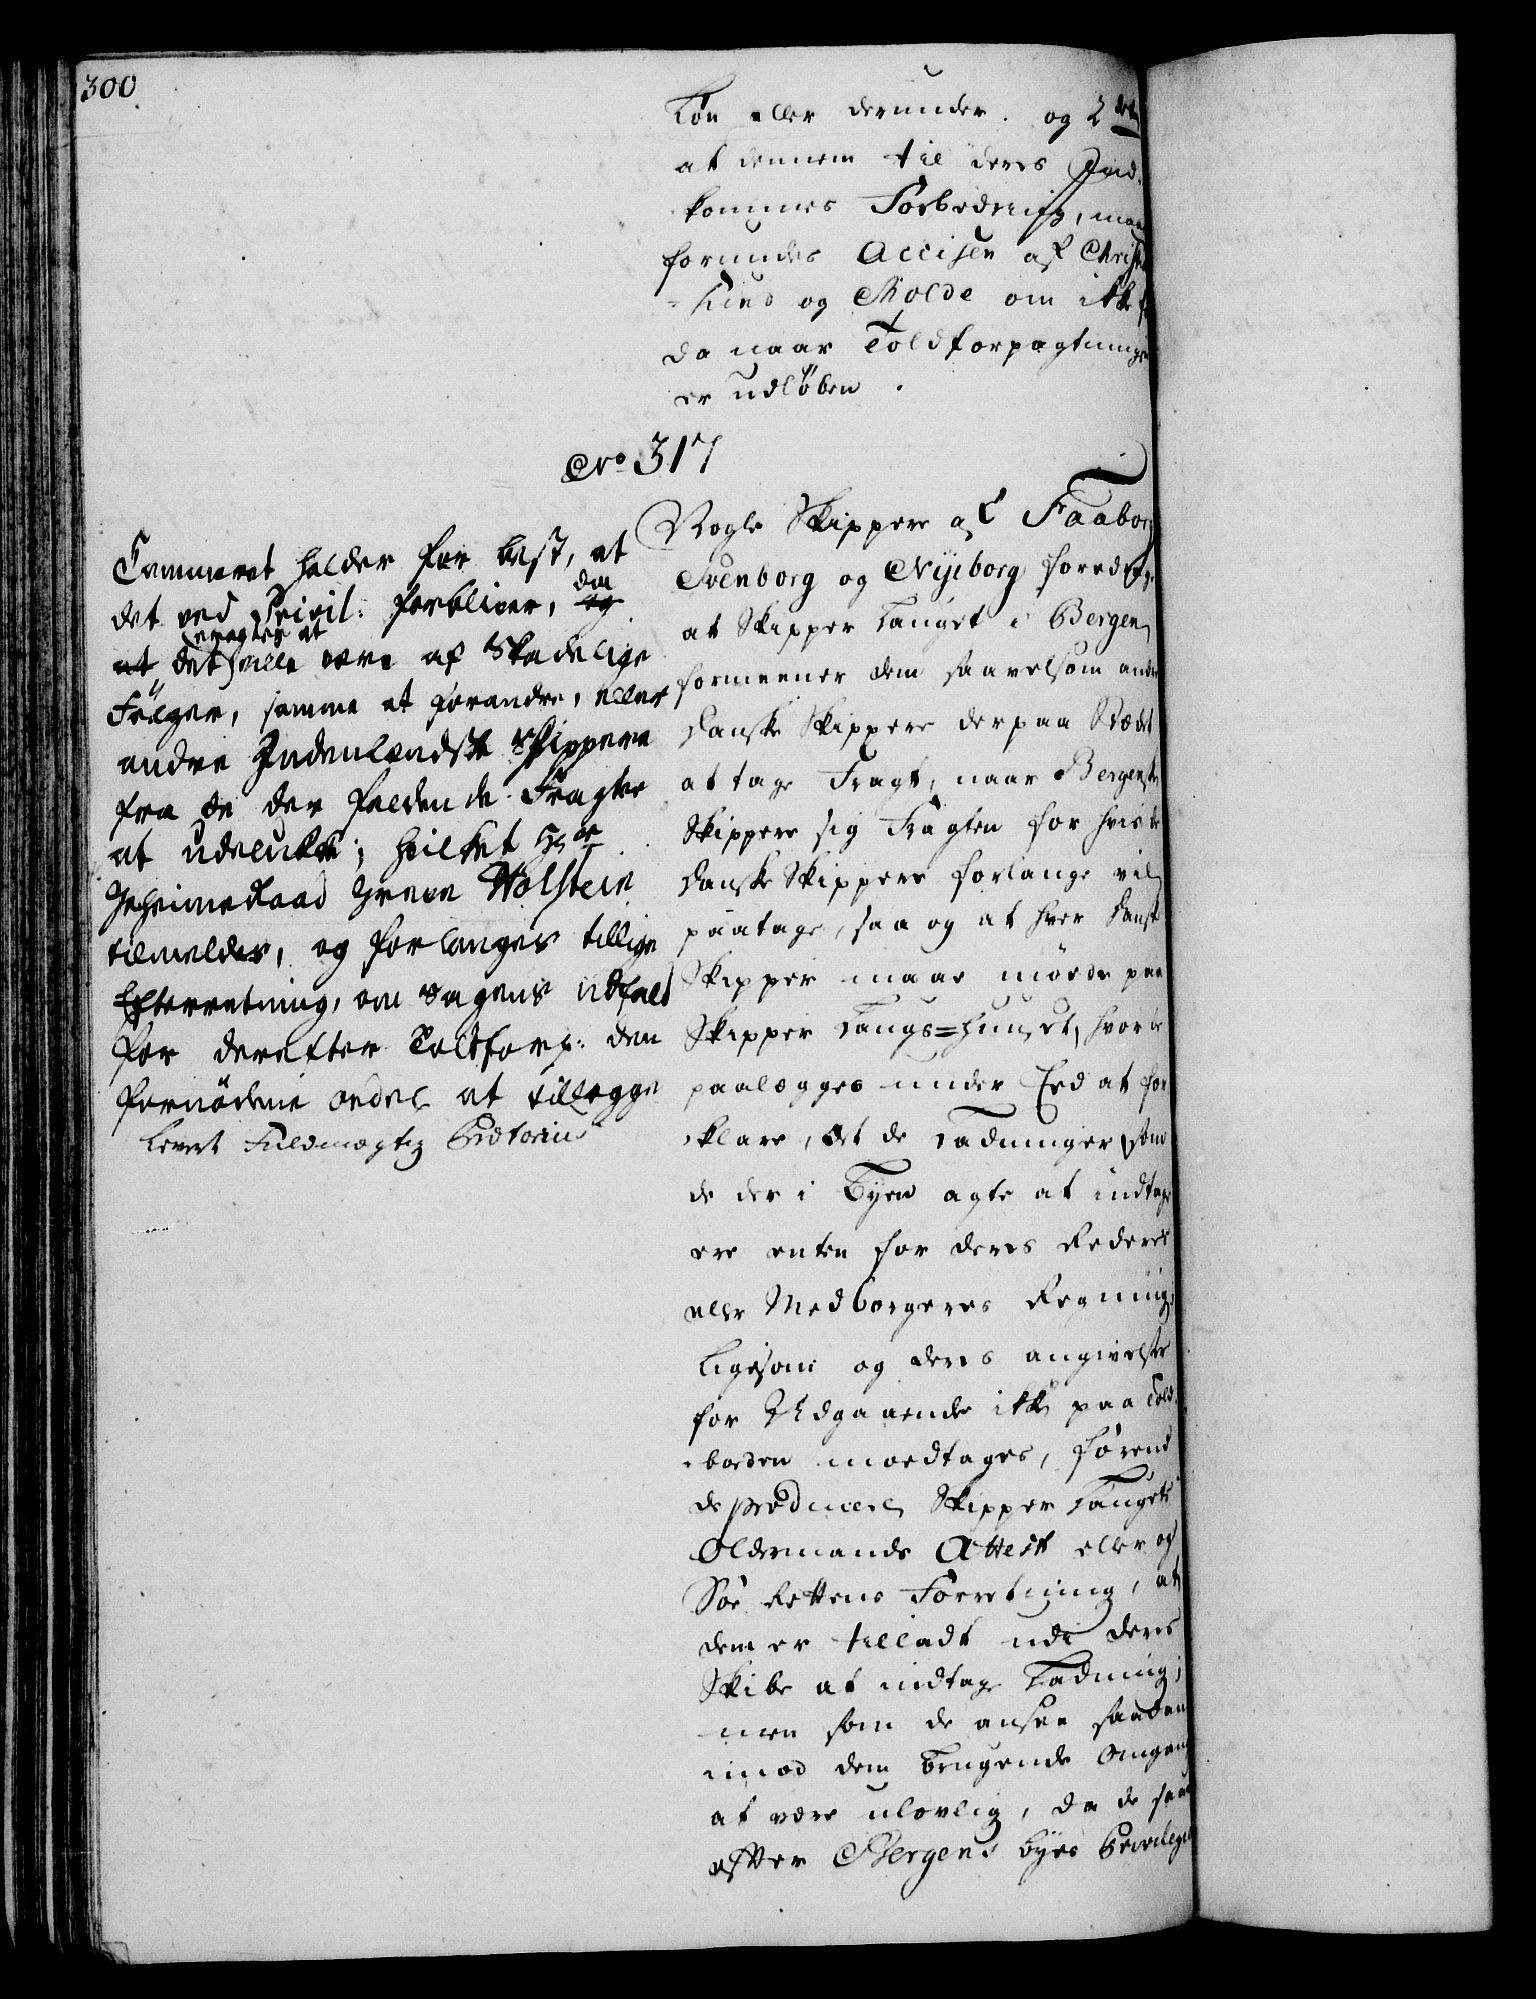 300
Løn eller derunder. og 2det
at dennem til deres Ind-
kommes Forbedring, maa
forundes Accisen af Christi
=sund og Molde om ikke f
da naar Toldforpagtninge
er udløben.
No 317
Nogle Skippere af Faaborg
Svenborg og Nyeborg foredrage
at Skipper Lauget i Bergen
formeener dem saavelsom andre
danske Skippere der paa Stædet
at tage Fragt, naar Bergenske
Skippere sig Fragten for hvis de
danske Skippere forlange vil
paatage, saa og at hver dansk
Skipper maae møde paa
Skipper Laugs=Huuset, hvor de
paalegges under Eed at for
klare, at de Ladninger som
de der i Byen agte at indtage
ere enten for deres Rederes
eller Medborgeres Regning,
ligesom og deres angivelse
for Udgaaende ikke paa Told-
=boden modtages, førend
de producere Skipper Laugets
Oldermands Attest eller og
Søe Rettens Forretning, at
dem er tilladt udi deres
Skibe at indtage Ladning;
men som de ansee saadan
imod dem brugende Omgang
at være ulovlig, da de saa
efter Bergens byes Privilegie
Cammeret holder for best, at
det ved Privil: forbliver, da
og
eragtes at
at det ville være af skadelige
Følger, samme at forandre, eller
andre Indenlandske Skippere
fra de der faldende Fragter
at udelukke; hvilket Hr
Geheime Raad Greve Holstein
tilmeldes, og forlanges tillige
Efterretning, om Sagens Udfald
for derefter Toldforp: den
fornødene ordre at tillegge
levert Fuldmægtig